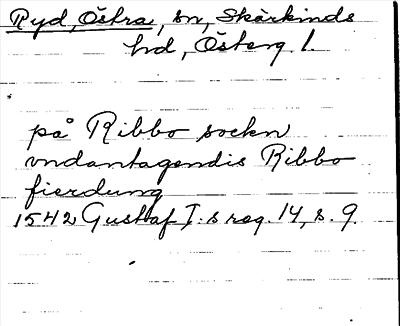 Ryd, Östra, sn, Skärkinds
hd, Österg. l.
på Ribbo sockn
vndantagendis Ribbo
fierdung
1542 Gustaf I:s reg. 14, s. 9.